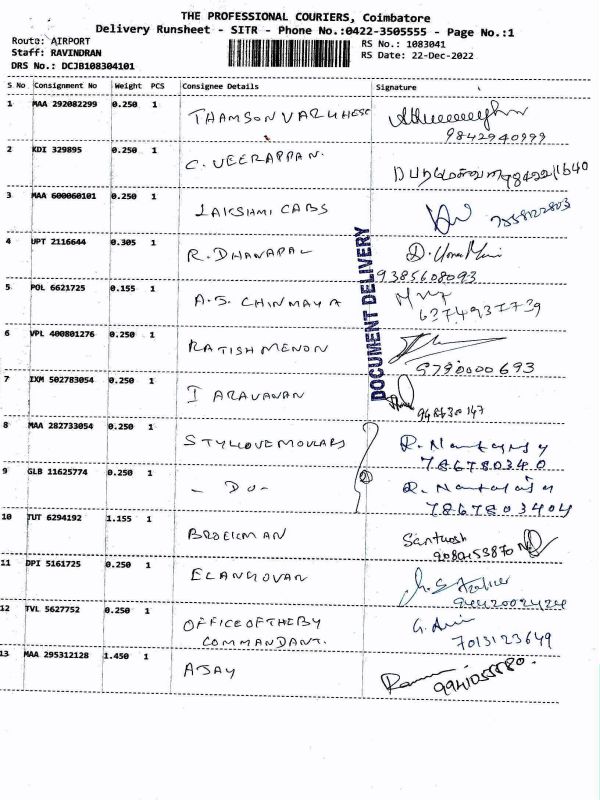 THE PROFESSIONAL COURIERS, Coimbatore
Delivery Runsheet - SITR - Phone No.:0422-3505555 - Page No.:1
Route: AIRPORT
RS No.: 1083041
Staff: RAVINDRAN
RS Date: 22-Dec-2022
DRS No.: DCJB108304101
S No Consignment No Weight PCS Consignee Details Signature
1 MAA 292082299 0.250 1 THAMSON VARUHESE
9842940999
2 KDI 329895 0.250 1 C. VEERAPPAN.
3 MAA 600060101 0.250 1 LAKSHMI CABS
4 UPT 2116644 0.305 1 R. DHANAPAL
9385608093
5 POL 6621725 0.155 1 A.S. CHINMAYA
6374931739
6 VPL 400801276 0.250 1 RATISH MENON
9790000693
DOCUMENT DELIVERY
7 IXM 502783054 0.250 1 I ARAVANAN
8 MAA 282733054 0.250 1
786780340
9 GLB 11625774 0.250 1 - DO -
7867803404
10 TUT 6294192 1.155 1 BROEKMAN Santhosh
9080453870
11 DPI 5161725 0.250 1 ELANGOVAN
12 TVL 5627752 0.250 1 OFFICE OF THE BY
COMMANDANT.
7013123649
13 MAA 295312128 1.450 1 AJAY